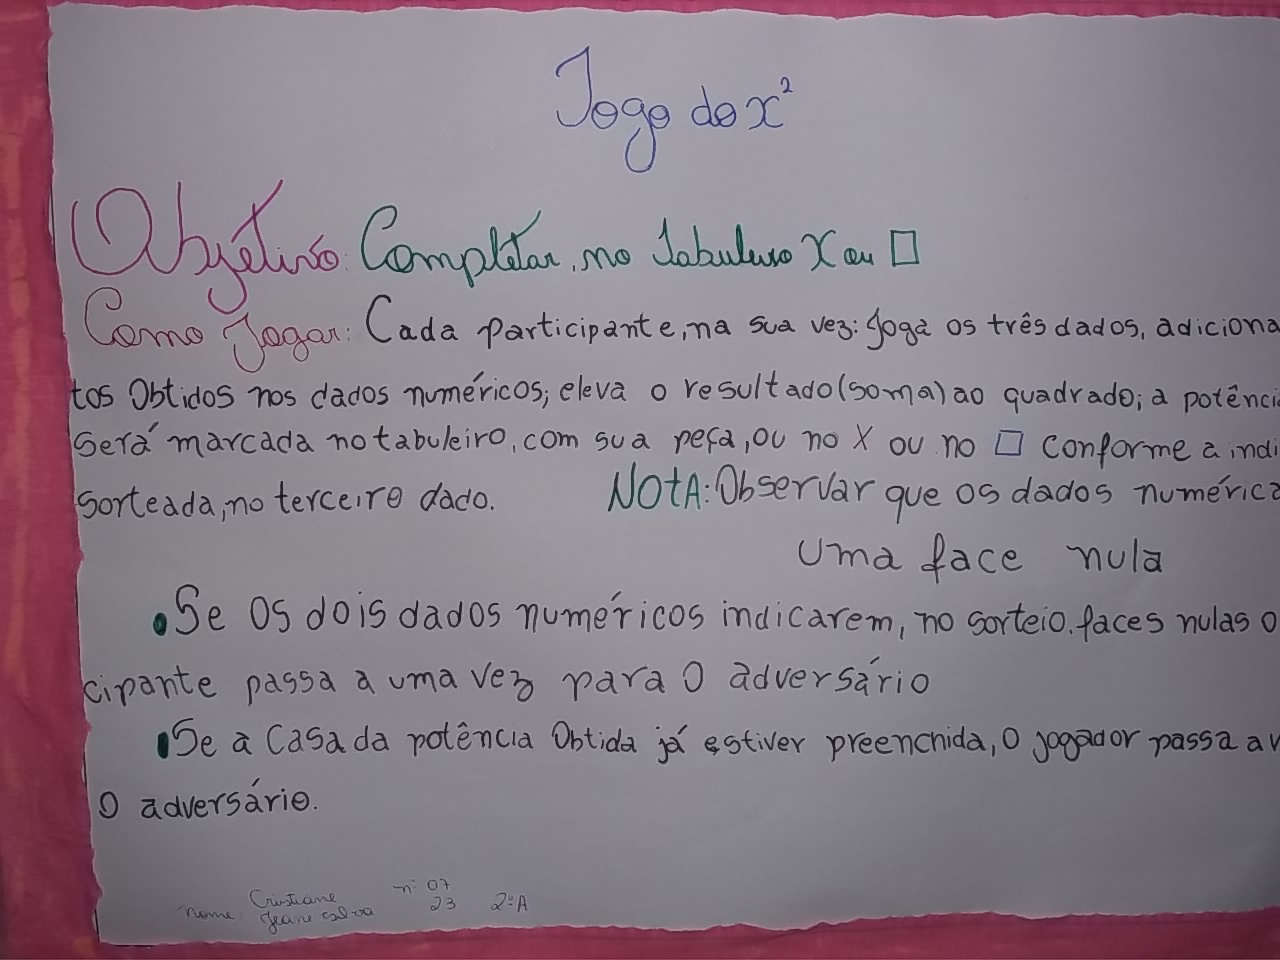 Jogo do x²
Objetivo: Completar, no Tabuleiro X ou □
Como Jogar: Cada participante, na sua vez: Joga os três dados, adiciona
tos Obtidos nos dados numéricos; eleva o resultado (soma) ao quadrado; a potênci
Será marcada no tabuleiro, com sua peça, ou no X ou no □ conforme a indi
Sorteada, no terceiro dado. NOTA: Observar que os dados numérica
uma face nula
• Se os dois dados numéricos indicarem, no sorteio, faces nulas o
cipante passa a uma vez para o adversário
• Se a Casa da potência Obtida já estiver preenchida, o jogador passa a v
o adversário.
nome: Cristiane nº 07
Jeane 23 2ºA